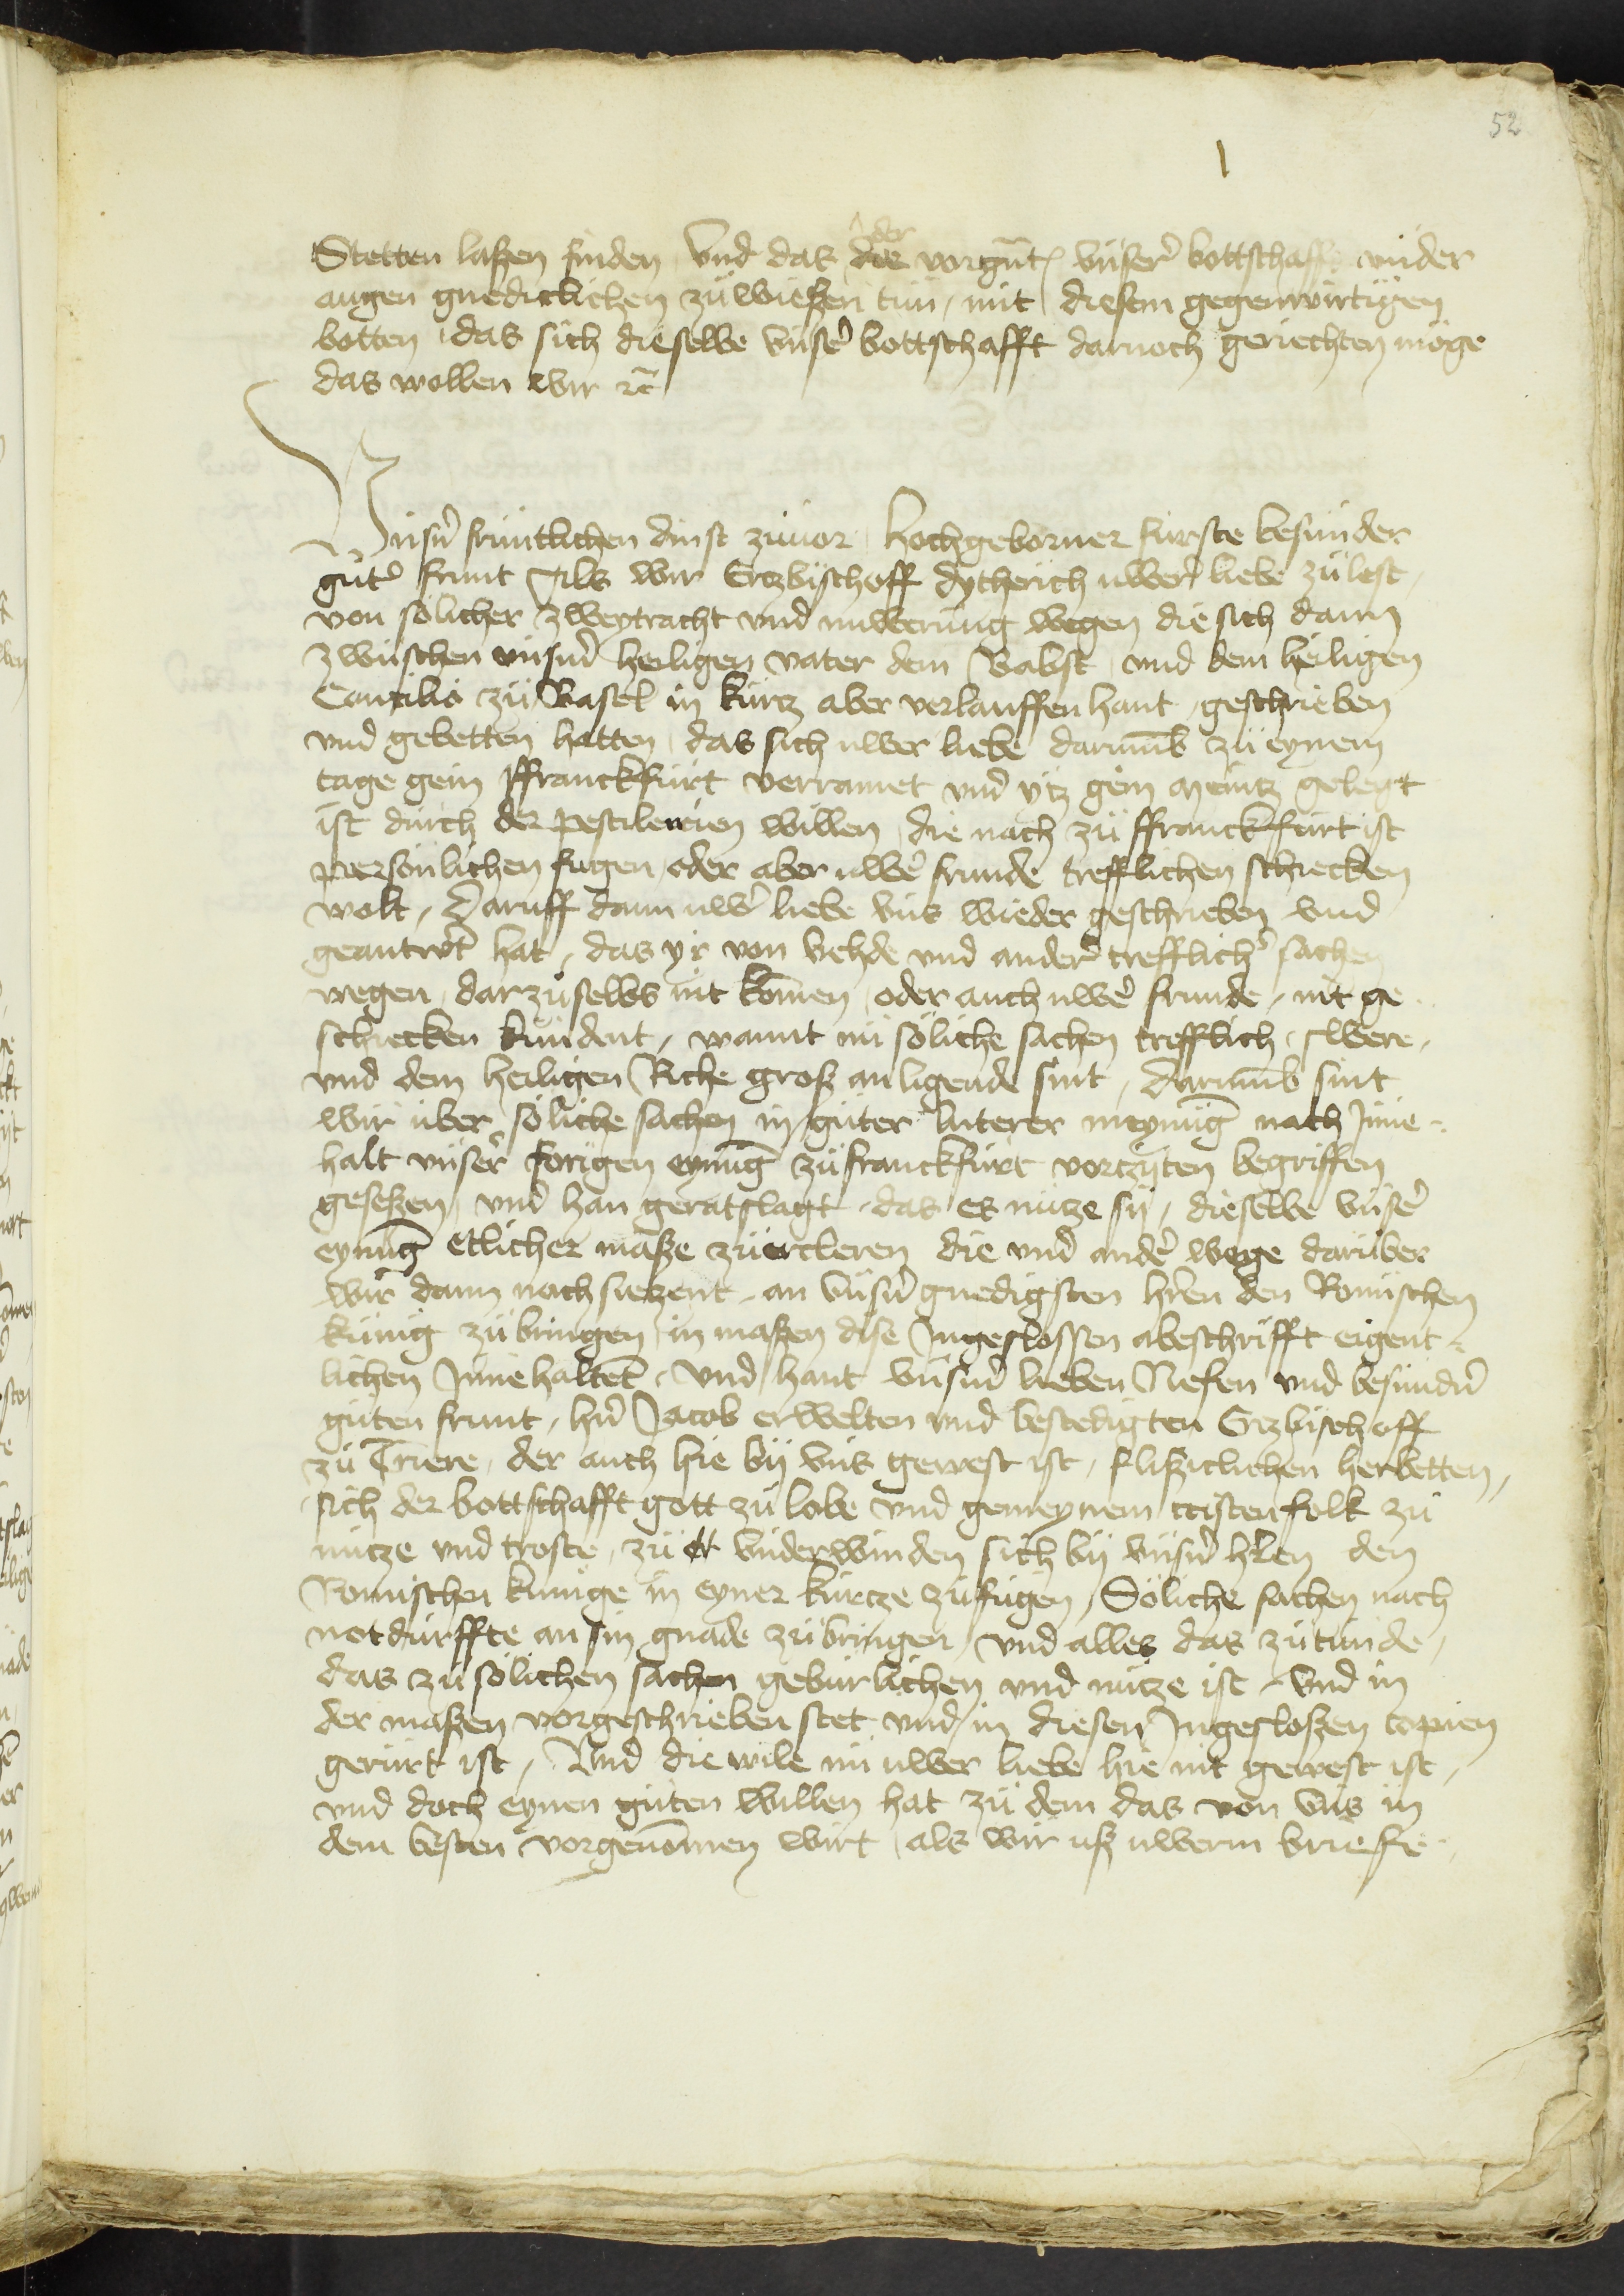 52
der
Stetten laßen finden Vnd das die vorgn̄t vnser bottschafft vnder
augen gnediclichen zuwießen tun, mit diesem gegenwirtigen
botten, das sich dieselbe vnser bottschafft darnoch geriechten möge
das wollen wir ꝛc̄
Vnsern fruntlichen dinst zuuor Hochgeborner furste besunder
guter frunt Als wir Erczbischoff Dytherich uwer liebe zulest,
von solicher zweytracht vnd irrung wegen die sich dann
zwuschen vnserm heiligen vater dem Babst, vnd dem heiligen
Concilio zu Basel in kurtz aber verlauffen hant, geschrieben
vnd gebetten hatten, das sich uwer liebe darumb zu eynem
tage gein ffranckfurt verramet vnd ytz gein Mentz gelegt
ist durch der pestilencien willen, die nach zu ffranckfurt ist
personlichen fugen, oder aber uwer frunde trefflichen schiecken
wolt, Daruff dann uwer liebe vns wieder geschrieben vnd
geantwort hat, das yr von vehde vnd ander trefflicher sachen
wegen, dar zu selbs nit komen, oder auch uwer frunde, nit ge-
schiecken kundent, wannt nu soliche sachen trefflich, swere,
vnd dem heiligen Riche groß an ligende sint, darumb sint
wir uber soliche sachen in guter luterer meynung nach Inne-
halt vnser forigen eynung zu franckfurt vorczyten begriffen
geseßen, vnd han geratslagt, das es nutze sy, dieselbe vnser
eynung etlicher maße zuercleren die vnd ander wege daruber
wir dann noch siczent, an vnsern gnedigsten herren den Romischen
kunig zubringen, in maßen dise Ingeslossen abeschrifft eigent-
lichen Innehaltet, Vnd hant vnserm lieben Nefen vnd besundern
guten frunt, hern Jacob erwelten vnd bestedigten Erzbischoff
zu Triere, der auch hie by vns gewest ist, fliß̈iclichen herbetten,
sich der bottschafft gott zu lobe vnd gemeynem cristenfolk zu
nutze vnd troste, zu vnderwinden sich by vnsern herren den
Romischen kunige in eyner kurcze zufugen, Soliche sachen nach
notdurffte an sin gnade zubringen, vnd alles das zutunde,
das zu solichen sachen geburlichen vnd nutze ist, Vnd in
der maßen vorgeschrieben stet vnd in diesen Ingesloßen copien
gerurt ist, Vnd die wile nu uwer liebe hie nit gewest ist,
vnd doch eynen guten willen hat zu dem das von vns in
dem besten vorgenomen wirt, als wir uß uwerm briefe